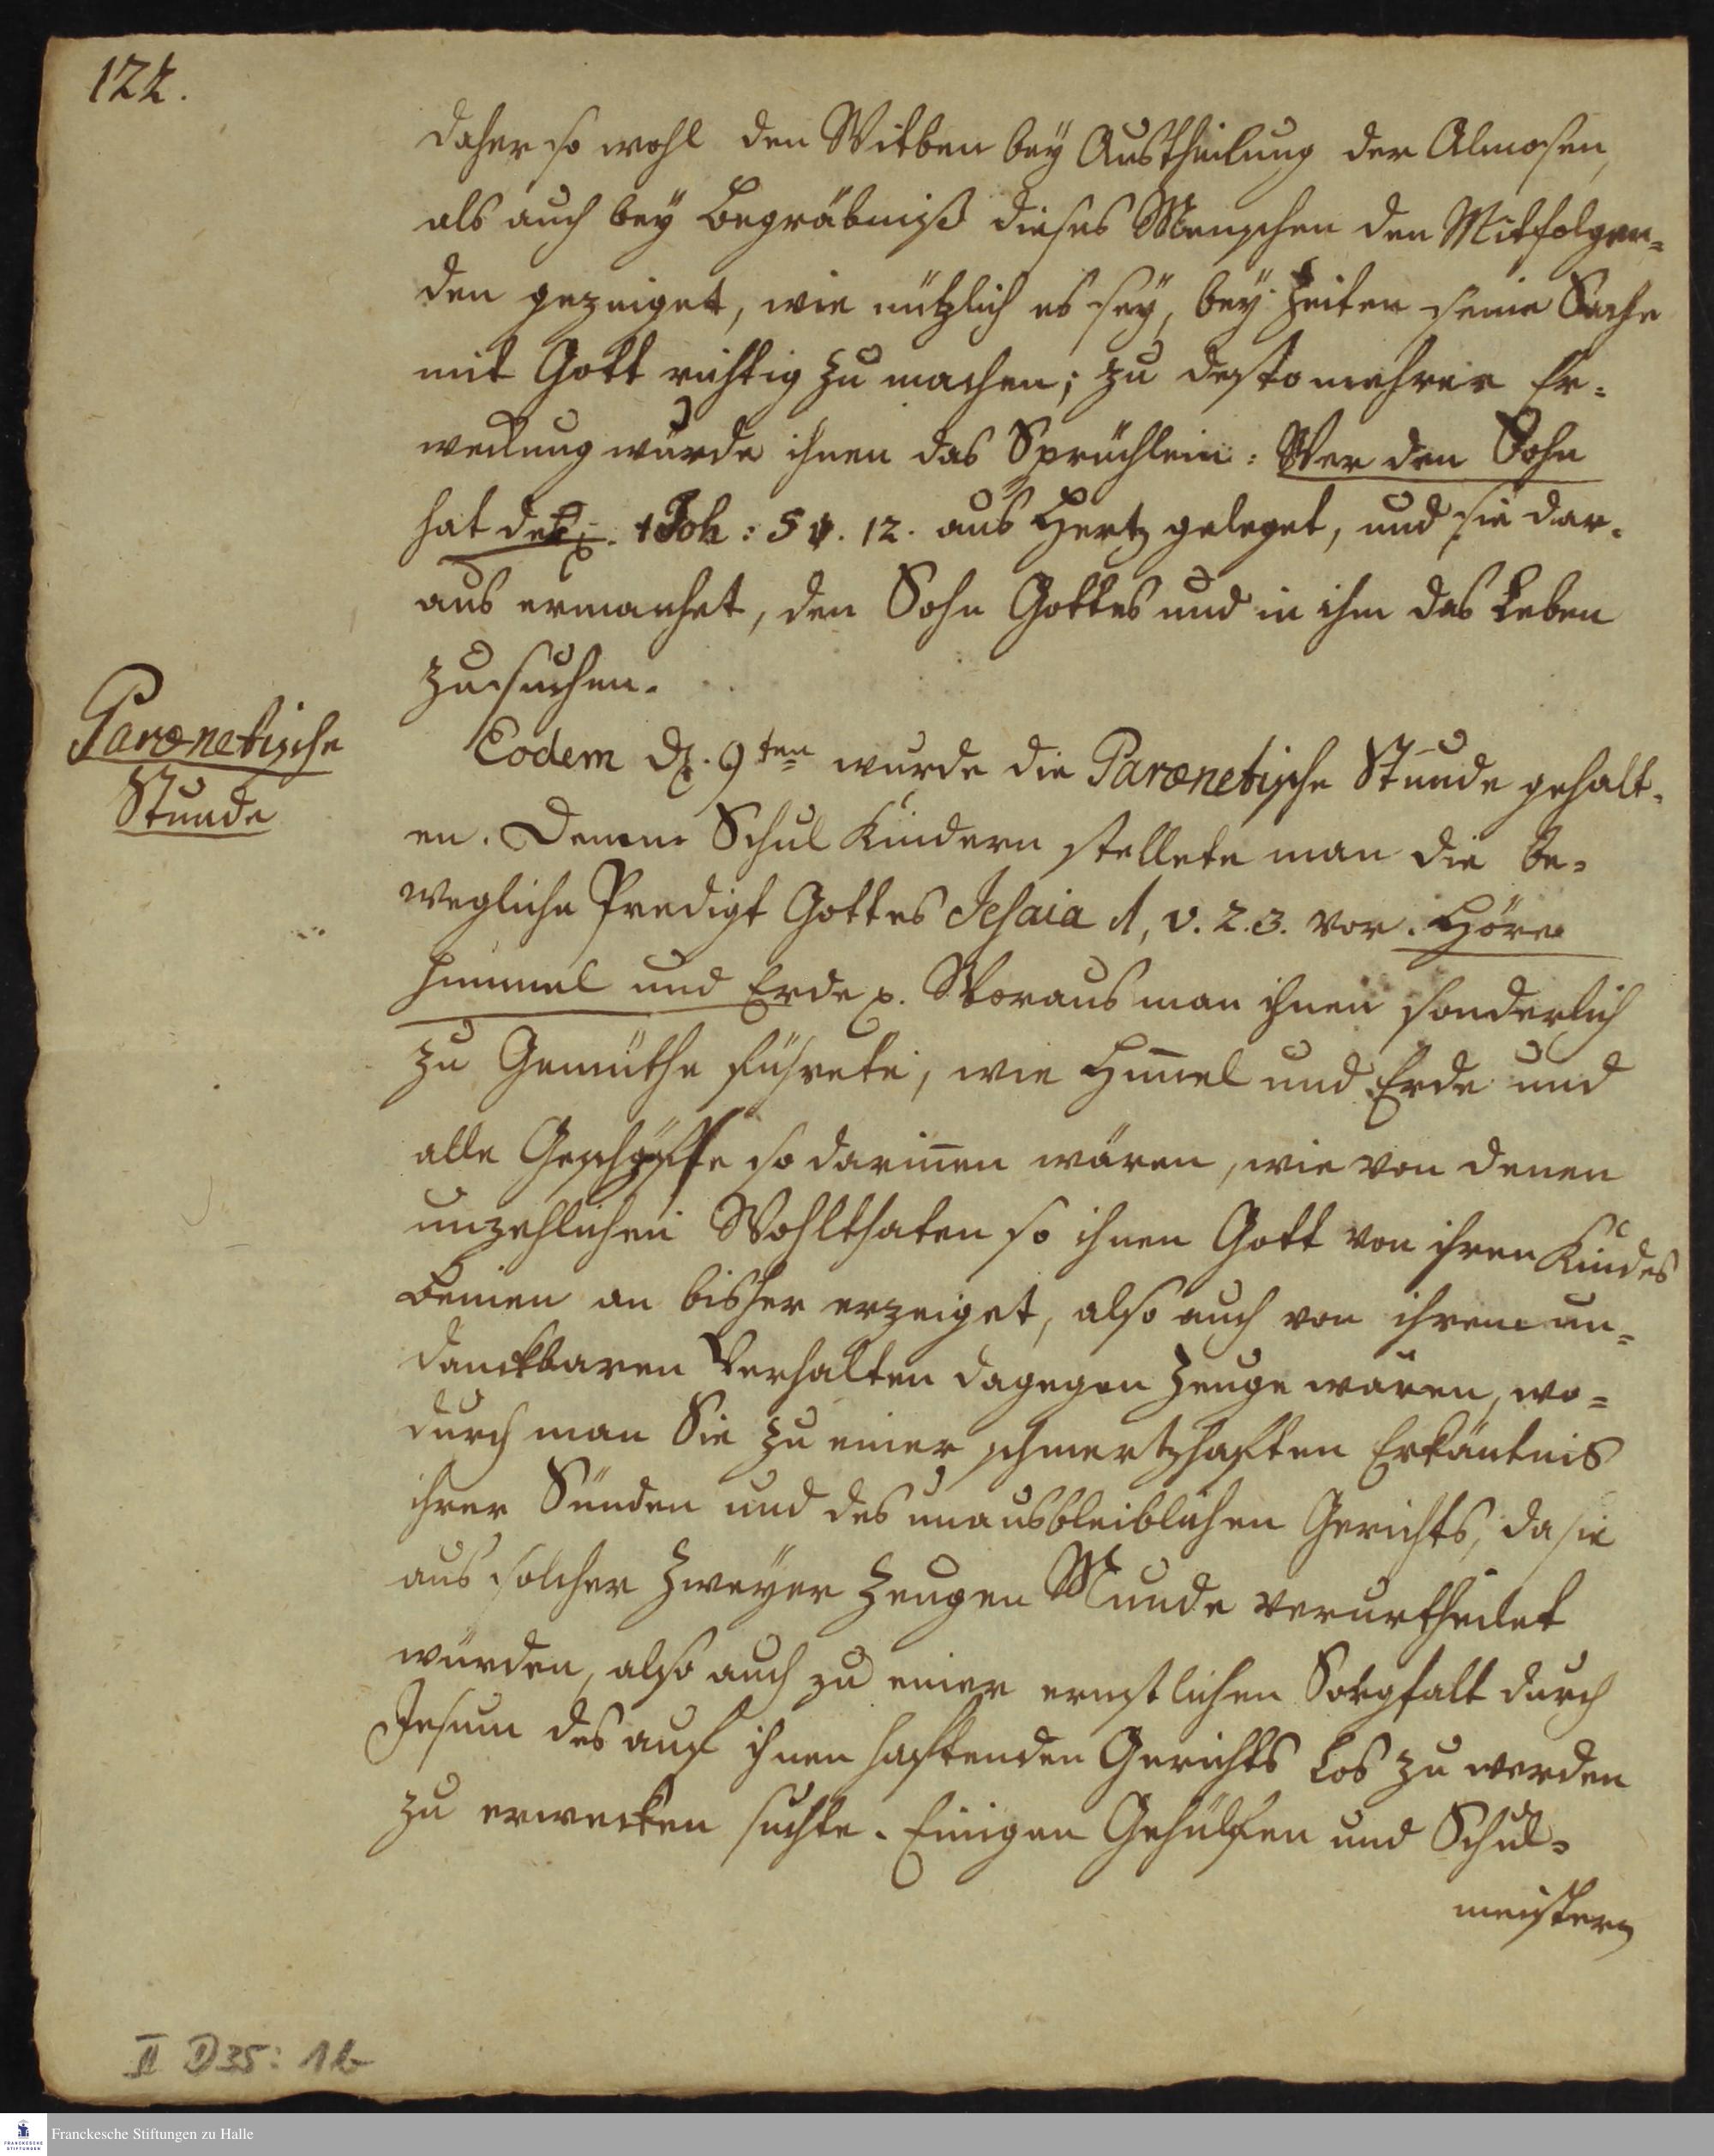 122.
daher so wohl den Witben bey Austheilung der Almosen,
als auch bey Begräbniß dieses Menschen den Mitfolgen=
den gezeiget, wie nützlich es sey, bey Zeiten seine Sache
mit Gott richtig zu machen; zu desto mehrer Er=
weckung wurde ihnen das Sprüchlein: Wer den Sohn
hat der 1 Joh: 5 v. 12. aus Hertz geleget, und sie dar=
aus ermahnet, den Sohn Gottes und in ihm das Leben
zu suchen.
Parænetische
Stunde
Eodem d. 9ten wurde die Parænetische Stunde gehalt=
en. Denen Schul Kindern stellete man die be=
wegliche Predigt Gottes Jesaia 1, v. 2.3. vor. Höre
Himmel und Erde p. Woraus man ihnen sonderlich
zu Gemüthe führete, wie Him̅el und Erde und
alle Geschöpffe so darin̅en wären, wie von denen
unzehlichen Wohlthaten so ihnen Gott von ihren Kindes
Beinen an bisher erzeiget, also auch von ihrem un=
danckbaren Verhalten dagegen Zeuge wären, wo=
durch man Sie zu einer schmertzhafften Erkäntnis
ihrer Sünden und des unausbleiblichen Gerichts, da sie
aus solcher Zweyer Zeugen Munde verurtheilet
würden, also auch zu einer ernstlichen Sorgfalt durch
Jesum des auf ihnen hafftenden Gerichts los zu werden
zu erwecken suchte. Einigen Gehülfen und Schul=
meistern
II D35: 16
Franckesche Stiftungen zu Halle